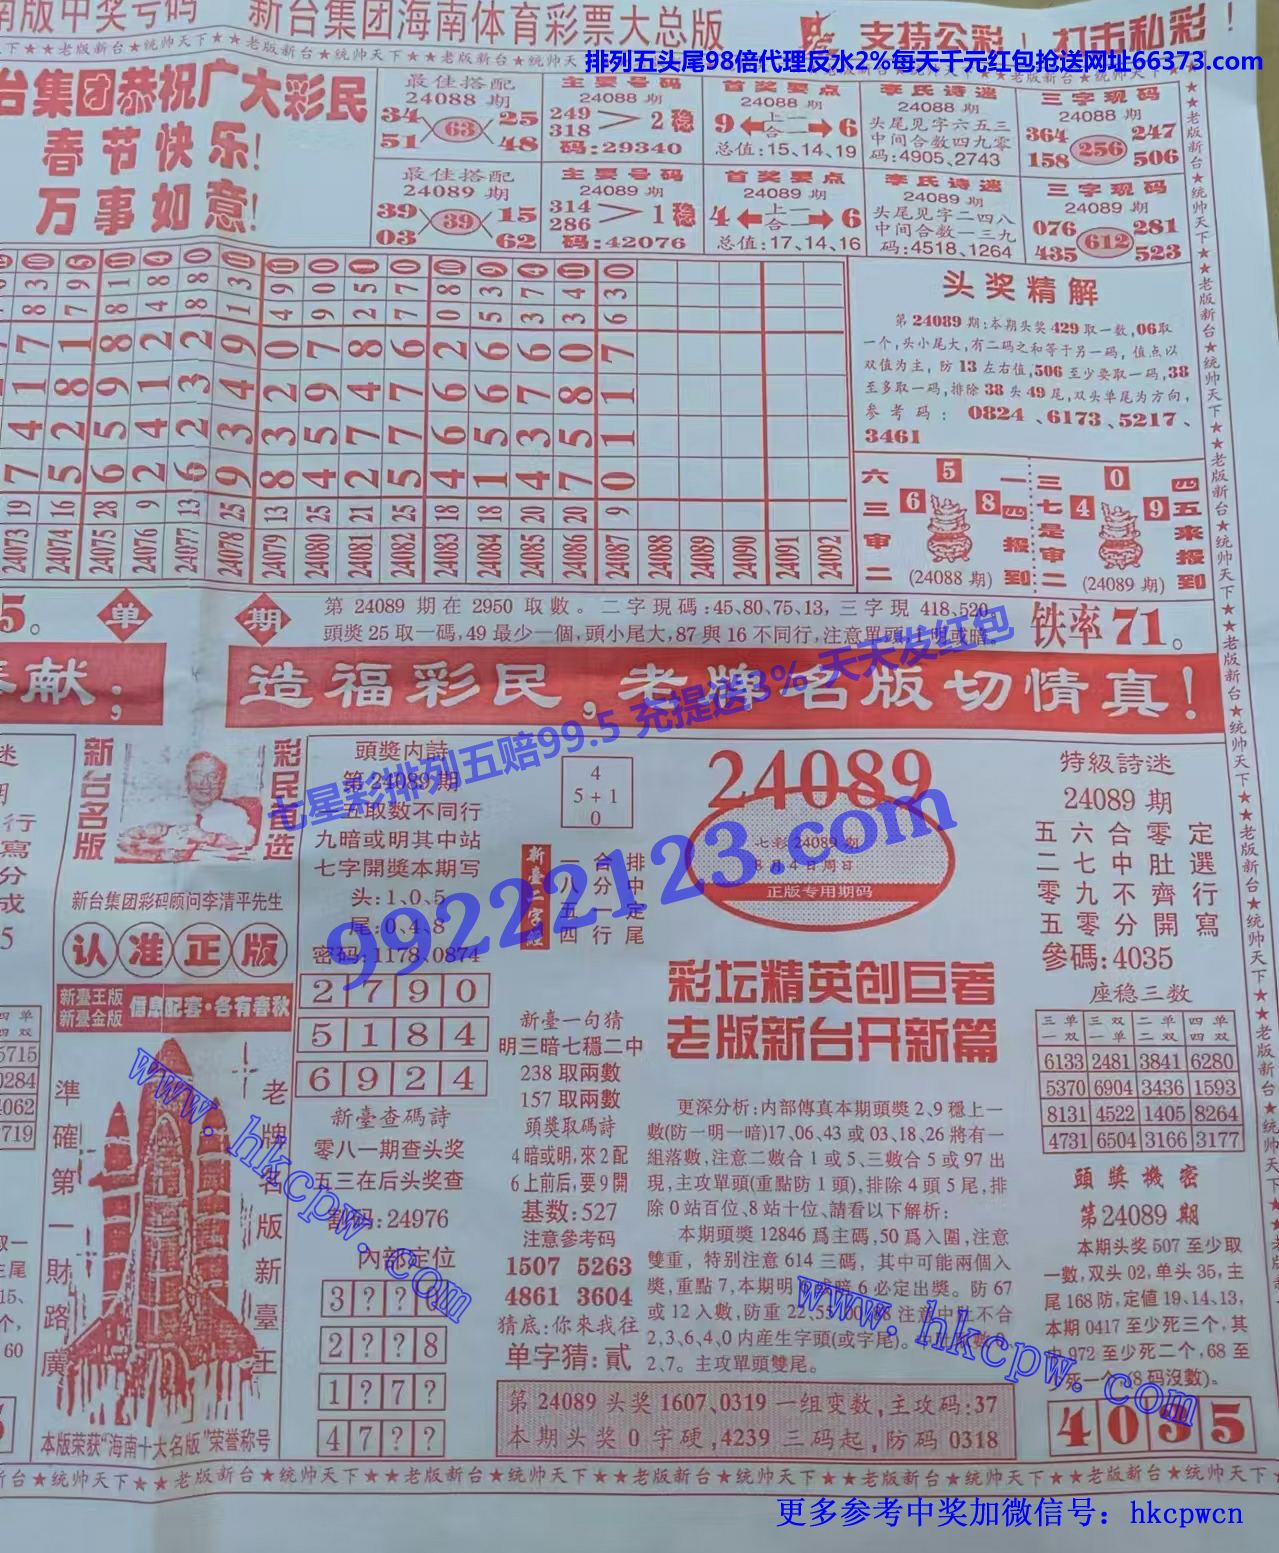 南版中奖号码 新台集团海南体育彩票大总版 支持公彩！打击私彩！
排列五头尾98倍代理反水2%每天千元红包抢送网址66373.com
台集团恭祝广大彩民
春节快乐!
万事如意!
最佳搭配
24088 期
34 25
63
51 48
主要号码
24088 期
249
318
2稳
码:29340
首奖要点
24088 期
9 上一 6
合二
总值:15、14、19
李氏诗迷
24088 期
头尾见字六五三
中间合数四九零
码:4905、2743
三字现码
24088 期
364 247
256
158 506
最佳搭配
24089 期
39 15
39
03 62
主要号码
24089 期
314
286
1稳
码:42076
首奖要点
24089 期
4 上一 6
合二
总值:17、14、16
李氏诗迷
24089 期
头尾见字二四八
中间合数一三九
码:4518、1264
三字现码
24089 期
076 281
612
435 523
7 4 1 7 19 24073
5 2 8 1 16 24074
6 5 9 8 28 24075
2 4 1 2 9 24076
6 2 3 2 13 24077
9 3 4 9 25 24078
8 3 2 0 13 24079
4 5 9 7 25 24080
2 7 4 8 21 24081
5 7 7 6 25 24082
4 6 6 2 18 24083
1 5 6 6 18 24084
4 3 7 6 20 24085
7 5 8 0 20 24086
0 1 1 7 9 24087
24088
24089
24090
24091
24092
头奖精解
第 24089 期:本期头奖 429 取一数,06取
一个,头小尾大,有二码之和等于另一码, 值点以
双值为主, 防 13 左右值,506 至少要取一码,38
至多取一码,排除 38 头 49 尾,双头单尾为方向,
参考码: 0824 、6173、5217、
3461
六三审二
5
6 8
一四报到
(24088 期)
三七是审二
0
4 9
四五来报到
(24089 期)
5。 单 期
第 24089 期在 2950 取數。二字現碼:45、80、75、13, 三字現 418、520,
頭獎 25 取一碼,49 最少一個,頭小尾大,87 與 16 不同行,注意單頭,1 明或暗。
铁率 71。
献； 造福彩民，老牌名版切情真！
新台名版
彩民首选
新台集团彩码顾问李清平先生
认准正版
新臺王版
新臺金版
信息配套·各有春秋
準確第一財路廣
老牌名版新臺王
本版荣获“海南十大名版”荣誉称号
頭獎内詩
第 24089 期
一五取数不同行
九暗或明其中站
七字開獎本期写
头:1、0、5
尾:0、4、8
密码:1178、0874
2 7 9 0
5 1 8 4
6 9 2 4
新臺查碼詩
零八一期查头奖
五三在后头奖查
密码:24976
内部定位
3 ? ? 6
2 ? ? 8
1 ? 7 ?
4 7 ? ?
4
5 + 1
0
新臺二字經
一合排
八分中
五一定
四行尾
新臺一句猜
明三暗七穩二中
238 取兩數
157 取兩數
頭獎取碼詩
4 暗或明,來 2 配
6 上前后,要 9 開
基数:527
注意參考码
1507 5263
4861 3604
猜底:你來我往
单字猜:貳
24089
七彩 24089 期
8 月 4 日周日
正版专用期码
彩坛精英创巨著
老版新台开新篇
更深分析:内部傳真本期頭獎 2、9 穩上一
數(防一明一暗)17、06、43 或 03、18、26 將有一
組落數,注意二數合 1 或 5、三數合 5 或 97 出
現,主攻單頭(重點防 1 頭),排除 4 頭 5 尾,排
除 0 站百位、8 站十位、請看以下解析:
本期頭獎 12846 爲主碼,50 爲入圍,注意
雙重, 特别注意 614 三碼, 其中可能兩個入
獎,重點 7,本期明 0 或暗 6 必定出獎。防 67
或 12 入數,防重 22、55、00、88 注意中肚不合
2、3、6、4、0 内産生字頭(或字尾)。中肚合數
2、7。主攻單頭雙尾。
第 24089 头奖 1607、0319 一组变数,主攻码:37
本期头奖 0 字硬,4239 三码起,防码 0318
特級詩迷
24089 期
五六合零定
二七中肚選
零九不齊行
五零分開寫
參碼:4035
座稳三数
三单一双 三双一单 二单二双 四单四双
6133 2481 3841 6280
5370 6904 3436 1593
8131 4522 1405 8264
4731 6504 3166 3177
頭獎機密
第 24089 期
本期头奖 507 至少取
一數,双头 02,单头 35,主
尾 168 防,定値 19、14、13,
本期 0417 至少死三个,其
中 972 至少死二个,68 至
少死一个(48 码沒數)。
4035
老版新台★统帅天下★★老版新台★统帅天下★★老版新台★统帅天下★★老版新台★统帅天下
七星彩排列五赔99.5 充提送3% 天天发红包
99222123.com
www.hkcpw.com
www.hkcpw.com
更多参考中奖加微信号：hkcpwcn